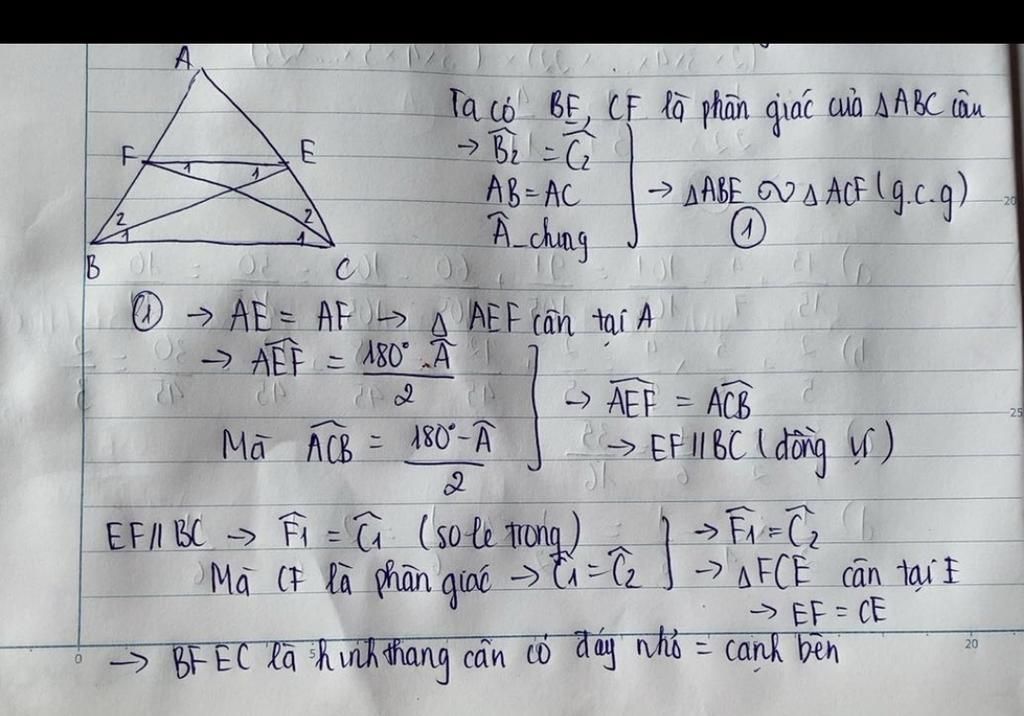 A
F E
1 1
2 2
1 1
B C
Ta có BE, CF là phân giác của △ABC cân
→ B̂2 = Ĉ2
AB = AC → △ABE ∽ △ACF (g.c.g)
Â chung ①
① → AE = AF → △ AEF cân tại A
→ AEF̂ = (180° - Â)/2
Mà ACB̂ = (180° - Â)/2
→ AEF̂ = ACB̂
→ EF // BC (đồng vị)
EF // BC → F̂1 = Ĉ1 (so le trong)
Mà CF là phân giác → Ĉ1 = Ĉ2
→ F̂1 = Ĉ2
→ △FCE cân tại E
→ EF = CE
→ BFEC là hình thang cân có đáy nhỏ = cạnh bên
0 5 20
20
25